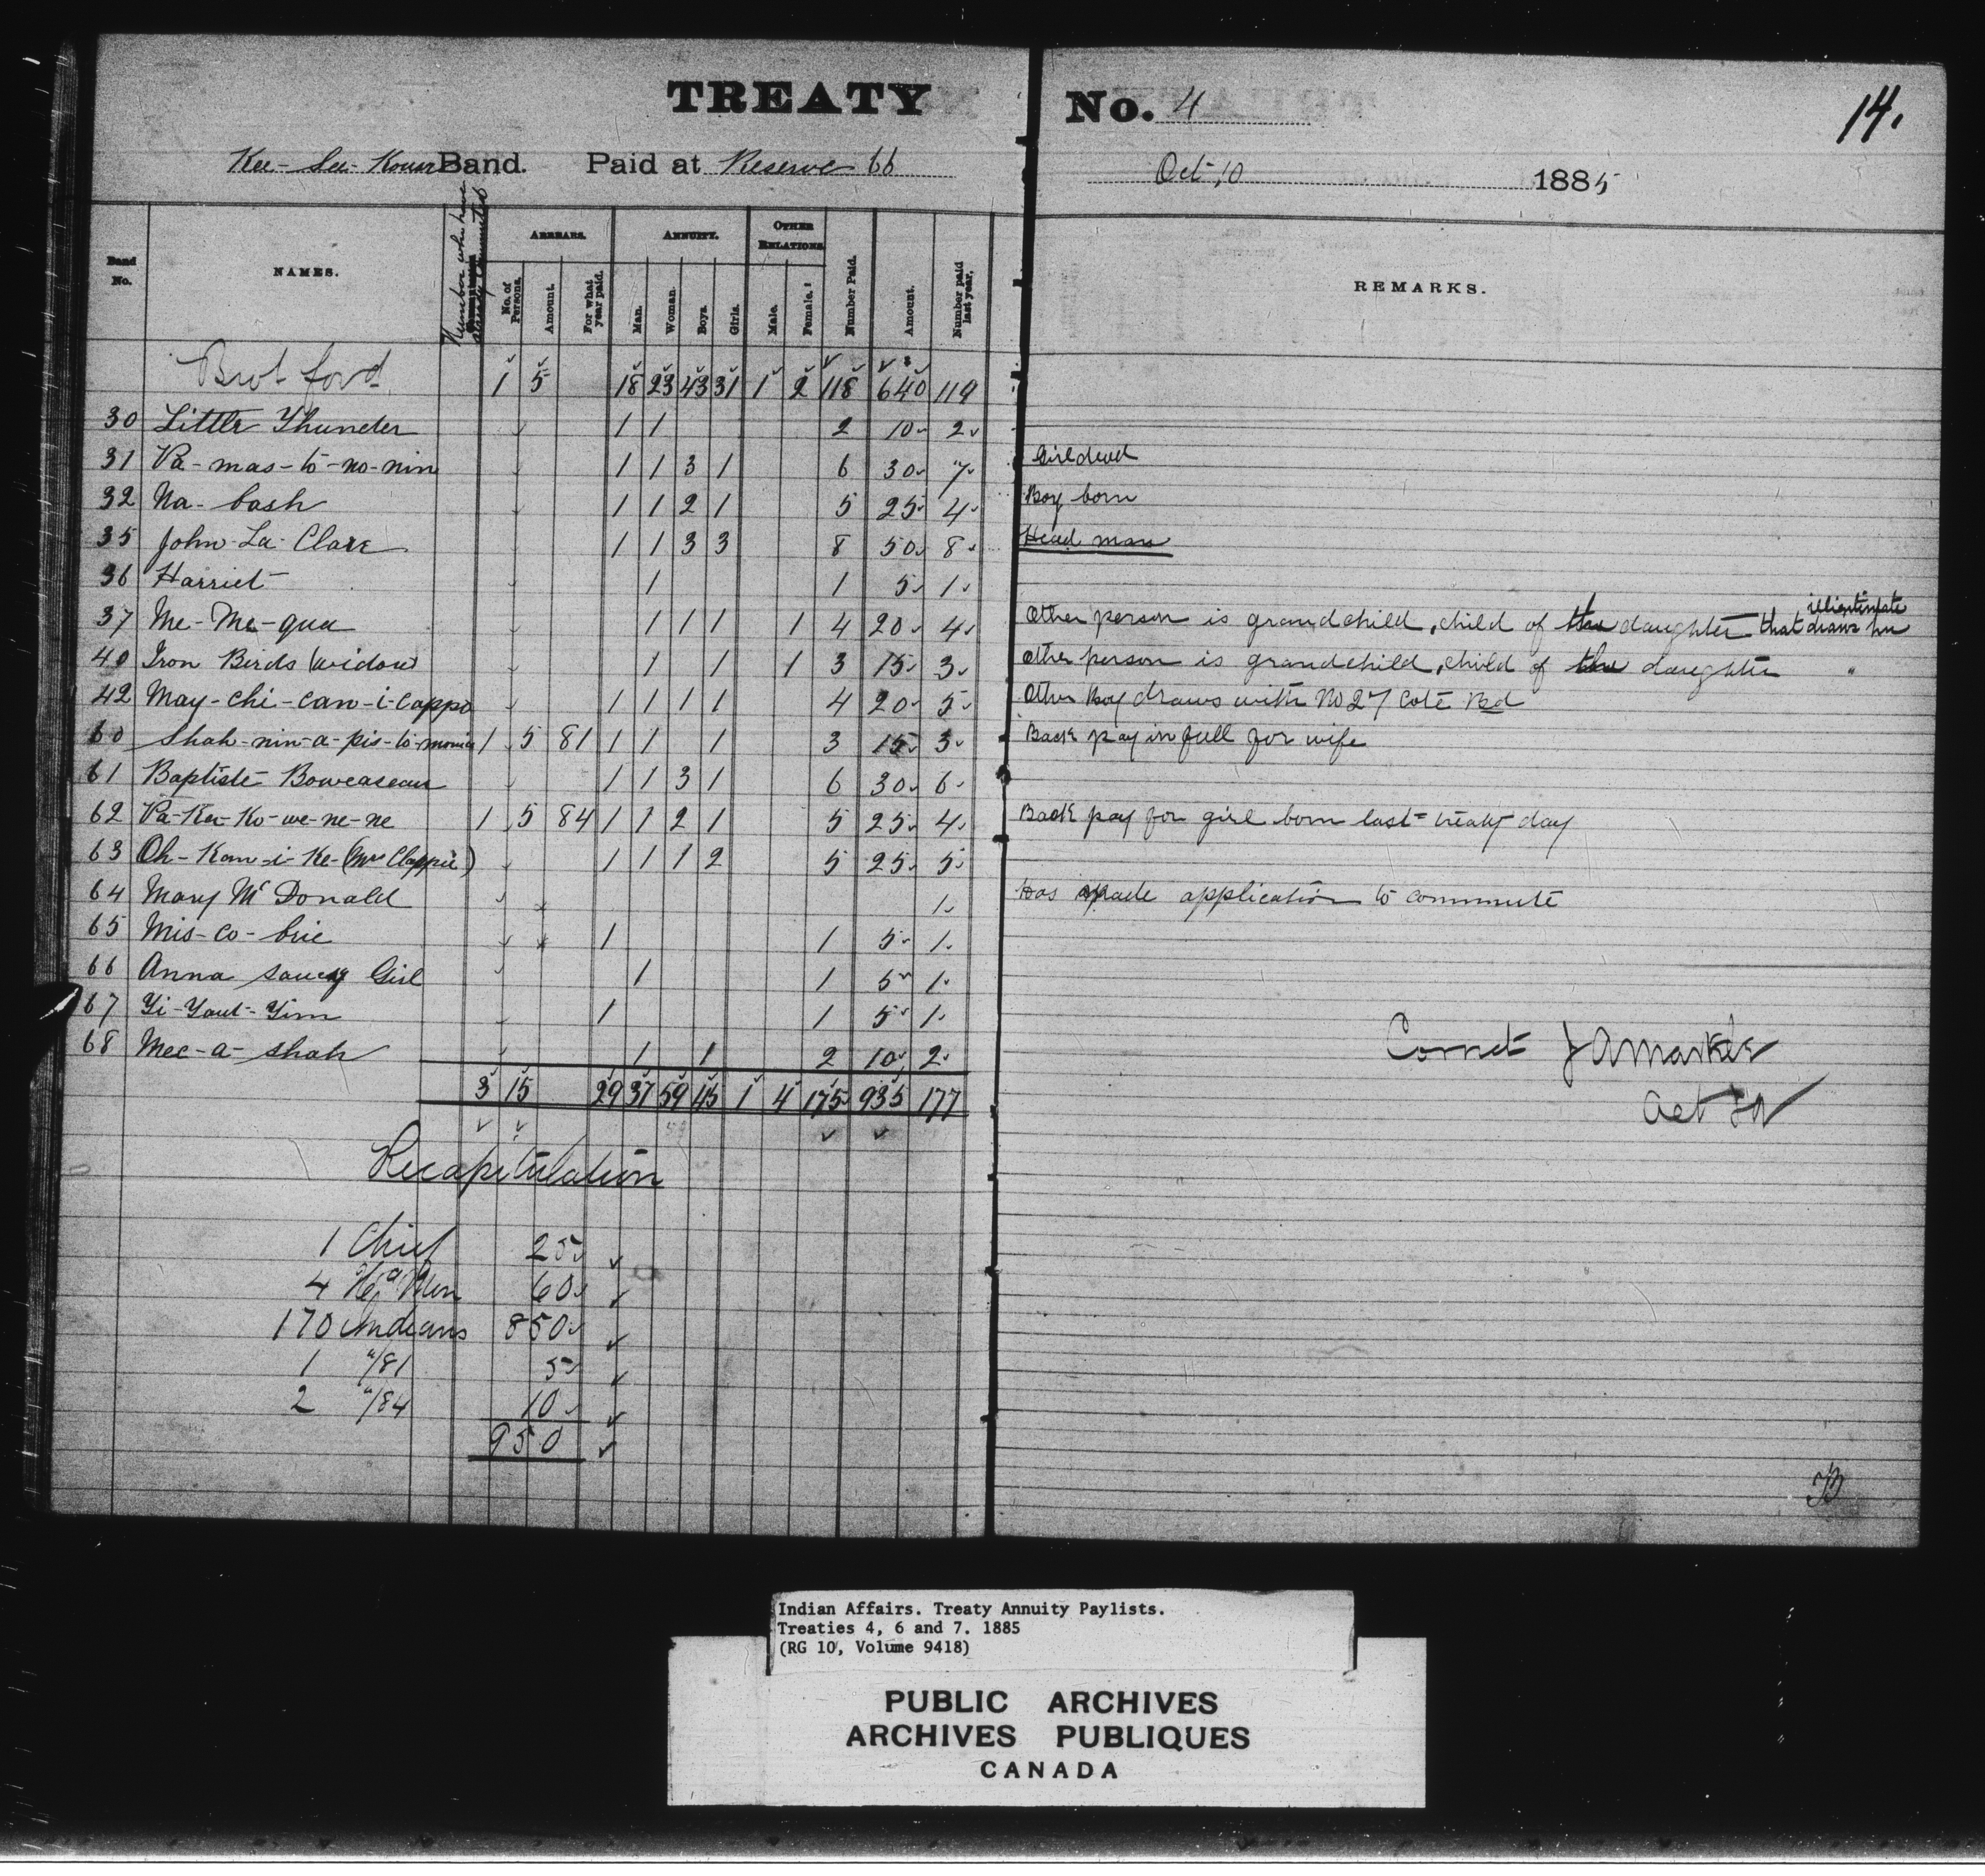 TREATY No. 4
14.
Kee-See-Kouse Band. Paid at Reserve 66 Oct 10 1885
Band No. NAMES. Number who have already Commuted ARREARS. No. of Persons. Amount. For what year paid. ANNUITY. Man. Woman. Boys. Girls. OTHER RELATIONS. Male. Female. Number Paid. Amount. Number paid last year. REMARKS.
Brot ford 1 5 18 23 43 31 1 2 118 640 119
30 Little Thunder 1 1 2 10 2
31 Pa-mas-to-no-nin 1 1 3 1 6 30 7 Girl dead
32 Na-bash 1 1 2 1 5 25 4 Boy born
35 John La Clare 1 1 3 3 8 50 8 Head man
36 Harriet 1 1 5 1
37 Me-Me-qua 1 1 1 1 4 20 4 Other person is grandchild, child of the daughter that draws illegitimate
40 Iron Birds (widow) 1 1 1 3 15 3 Other person is grandchild, child of the daughter "
42 May-chi-can-i-cappo 1 1 1 1 4 20 5 Other Boy draws with No 27 Cote Bd
60 Shah-nin-a-pis-to-monia 1 5 81 1 1 1 3 15 3 Back pay in full for wife
61 Baptiste Boweaseau 1 1 3 1 6 30 6
62 Pa-Ke-Ko-we-ne-ne 1 5 84 1 1 2 1 5 25 4 Back pay for girl born last treaty day
63 Oh-Kan-i-Ke-(Mrs Clappie) 1 1 1 2 5 25 5
64 Mary McDonald 1 Has made application to commute
65 Mis-co-brie 1 1 5 1
66 Anna saucy Girl 1 1 5 1
67 Yi-Yaut-Yim 1 1 5 1
68 Mec-a-shah 1 1 2 10 2
3 15 29 37 59 45 1 4 175 935 177
Correct J A Markle
Act IA
Recapitulation
1 Chief 25
4 Hd Men 60
170 Indians 850
1 "/81 5
2 "/84 10
950
Indian Affairs. Treaty Annuity Paylists.
Treaties 4, 6 and 7. 1885
(RG 10, Volume 9418)
PUBLIC ARCHIVES
ARCHIVES PUBLIQUES
CANADA